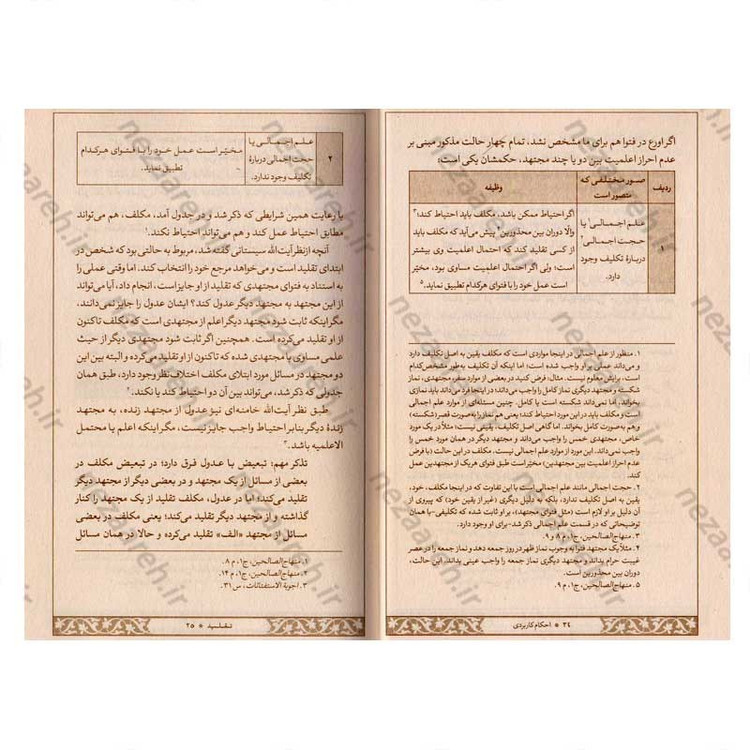 اگر اورع در فتوا هم برای ما مشخص نشد، تمام چهار حالت مذکور مبنی بر
عدم احراز اعلمیت بین دو یا چند مجتهد، حکمشان یکی است:
ردیف
صور مختلفی که
متصور است
وظیفه
۱
علم اجمالی۱ یا
حجت اجمالی۲
دربارهٔ تکلیف وجود
دارد.
اگر احتیاط ممکن باشد، مکلف باید احتیاط کند؛۳
والا دوران بین محذورین۴ پیش می‌آید که مکلف باید
از کسی تقلید کند که احتمال اعلمیت وی بیشتر
است؛ ولی اگر احتمال اعلمیت مساوی بود، مخیّر
است عمل خود را با فتوای هرکدام تطبیق نماید.۵
۱. منظور از علم اجمالی در اینجا مواردی است که مکلف یقین به اصل تکلیف دارد
و می‌داند عملی بر او واجب شده است؛ اما اینکه آن تکلیف به‌طور مشخص کدام
است، برایش معلوم نیست. مثال: فرض کنید در بعضی از موارد سفر، مجتهدی، نماز
شکسته و مجتهد دیگری نماز کامل را واجب می‌داند؛ در اینجا هر فرد می‌داند باید نمازی
بخواند، اما نمی‌داند شکسته است یا کامل. چنین مسئله‌ای از موارد علم اجمالی
است و مکلف باید در این مورد احتیاط کند؛ یعنی هم نماز را به‌صورت قصر (شکسته)
و هم به‌صورت کامل بخواند. اما گاهی اصل تکلیف، یقینی نیست؛ مثلاً در یک مورد
خاص، مجتهدی خمس را واجب می‌داند و مجتهد دیگر در همان مورد خمس را
واجب نمی‌داند. این مورد از موارد علم اجمالی نیست. مکلف در این حالت (با فرض
عدم احراز اعلمیت بین مجتهدین)، مخیّر است طبق فتوای هر یک از مجتهدین عمل
کند.
۲. حجت اجمالی مانند علم اجمالی است با این تفاوت که در اینجا مکلف، خود،
یقین به اصل تکلیف ندارد، بلکه به دلیل دیگری (غیر از یقین خود) که پیروی از
آن دلیل بر او لازم است (مثل فتوای مجتهد)، بر او ثابت شده که تکلیفی -با همان
توضیحاتی که در قسمت علم اجمالی ذکر شد- برای او وجود دارد.
۳. منهاج الصالحین، ج۱، م ۸ و ۹.
۴. مثلاً یک مجتهد فتوا به وجوب نماز ظهر در روز جمعه دهد و نماز جمعه را در عصر
غیبت حرام بداند و مجتهد دیگری نماز جمعه را واجب عینی بداند. این حالت،
دوران بین محذورین است.
۵. منهاج الصالحین، ج۱، م ۹.
۲۴ * احکام کاربردی
۲
علم اجمالی یا
حجت اجمالی دربارهٔ
تکلیف وجود ندارد.
مخیّر است عمل خود را با فتوای هرکدام
تطبیق نماید.
با رعایت همین شرایطی که ذکر شد و در جدول آمد، مکلف، هم می‌تواند
مطابق احتیاط عمل کند و هم می‌تواند احتیاط نکند.۱
آنچه از نظر آیت‌الله سیستانی گفته شد، مربوط به حالتی بود که شخص در
ابتدای تقلید است و می‌خواهد مرجع خود را انتخاب کند. اما وقتی عملی را
به استناد به فتوای مجتهدی که تقلید از او جایز است، انجام داد، آیا می‌تواند
از این مجتهد به مجتهد دیگر عدول کند؟ ایشان عدول را جایز نمی‌دانند،
مگر اینکه ثابت شود مجتهد دیگر اعلم از مجتهدی است که مکلف تاکنون
از او تقلید می‌کرده است. همچنین اگر ثابت شود مجتهدی دیگر از حیث
علمی مساوی با مجتهدی شده که تاکنون از او تقلید می‌کرده و البته بین این
دو مجتهد در مسائل مورد ابتلای مکلف اختلاف نظر وجود دارد، طبق همان
جدولی که ذکر شد، می‌تواند بین آن دو احتیاط کند یا نکند.۲
طبق نظر آیت‌الله خامنه‌ای نیز عدول از مجتهد زنده، به مجتهد
زندهٔ دیگر بنابر احتیاط واجب جایز نیست، مگر اینکه اعلم یا محتمل
الاعلمیه باشد.۳
تذکر مهم: تبعیض با عدول فرق دارد؛ در تبعیض مکلف در
بعضی از مسائل از یک مجتهد و در بعضی دیگر از مجتهد دیگر
تقلید می‌کند؛ اما در عدول، مکلف تقلید از یک مجتهد را کنار
گذاشته و از مجتهد دیگر تقلید می‌کند؛ یعنی مکلف در بعضی
مسائل از مجتهد «الف» تقلید می‌کرده و حالا در همان مسائل
۱. منهاج الصالحین، ج۱، م ۸.
۲. منهاج الصالحین، ج۱، م ۱۴.
۳. اجوبة الاستفتائات، س ۳۱.
تقلید * ۲۵
nezaareh.ir